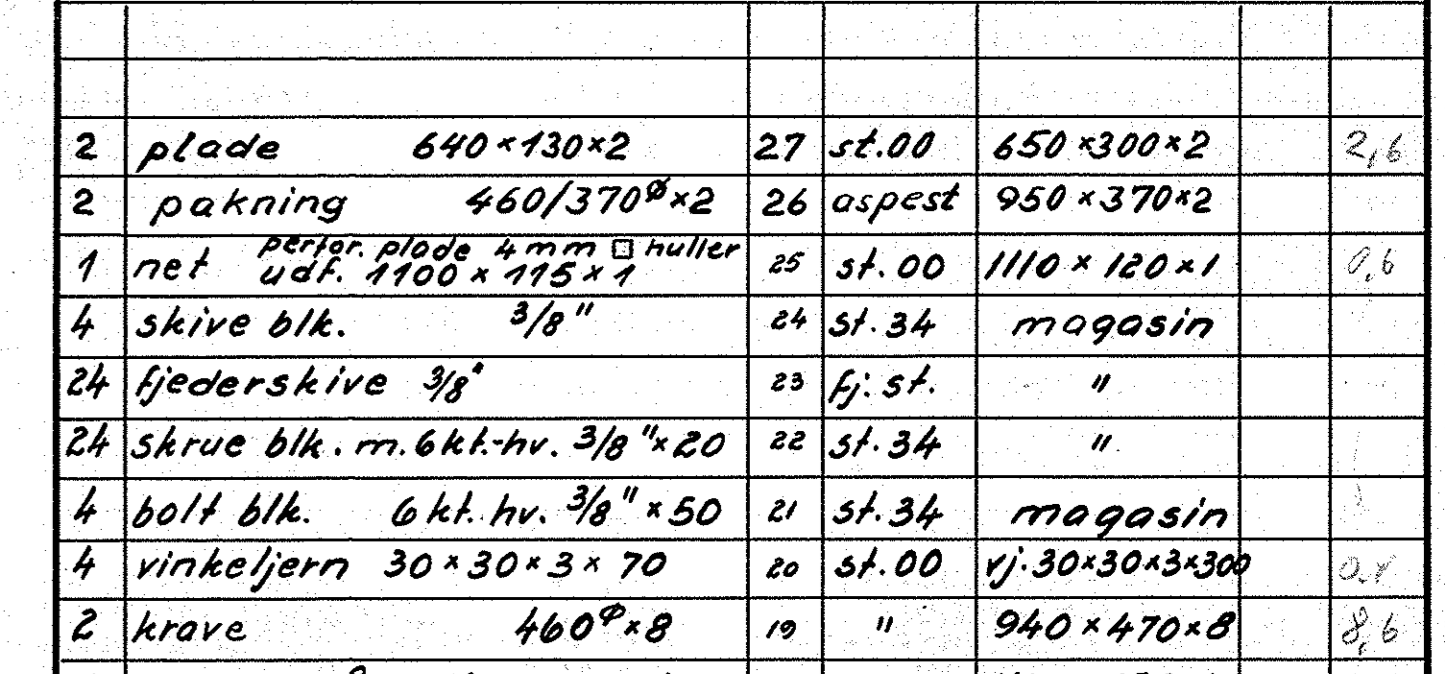 2 plade 640×130×2 27 st.00 650×300×2 2,6
2 pakning 460/370ø×2 26 aspest 950×370×2
1 net perfor. plade 4 mm □ huller
udf. 1100×115×1 25 st.00 1110×120×1 0,6
4 skive blk. 3/8" 24 st.34 magasin
24 fjederskive 3/8" 23 fj. st. "
24 skrue blk. m. 6kt.-hv. 3/8"×20 22 st.34 "
4 bolt blk. 6kt. hv. 3/8"×50 21 st.34 magasin
4 vinkeljern 30×30×3×70 20 st.00 vj.30×30×3×300
2 krave 460ø×8 19 " 940×470×8 8,6